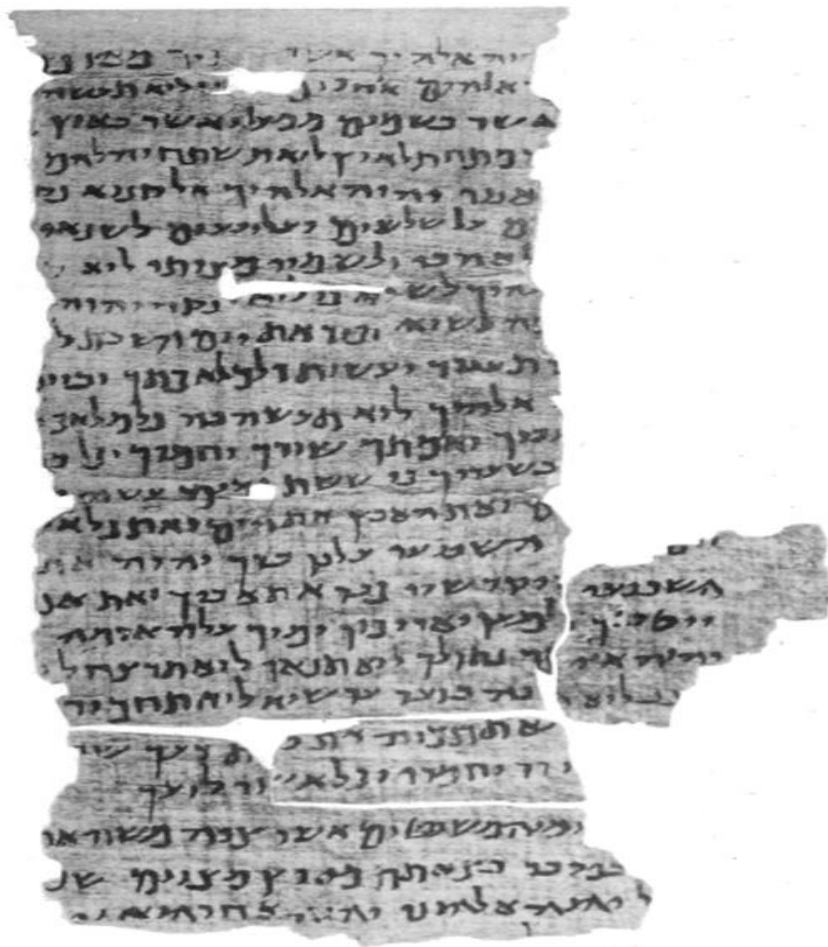 יהוה אלהיך אשר תיך מארץ
אלהים אחרים לוא תעשה
אשר בשמים ממעל ואשר בארץ
מתחת לארץ לוא תשתחוה להם
אנכי יהוה אלהיך אל קנוא פק
ם על שלשים ועל רבעים לשנאי
לאהבי ולשמרי מצותי לוא ת
להיך לשוא כי לוא ינקה יהוה
ה לשוא זכור את יום השבת ל
תעבוד ועשית כל מלאכתך וביום
אלהיך לוא תעשה בה כל מלאכה
עבדך ואמתך שורך וחמרך וכל ב
בשעריך כי ששת ימים עשה י
ם ואת הארץ את הים ואת כל א
השביעי על כן ברך יהוה את
השביעי ויקדשיו כבד את אביך ואת אמ
ייטב לך ולמען יאריכון ימיך על האדמה
יהוה אלהיך נתן לך לוא תנאף לוא תרצח לו
נב לוא ברעך עד שוא לוא תחמוד
את בית רעך שד
ורו וחמרו וכל אשר לרעך
ים והמשפטים אשר צוה משה את
במדבר בצאתם מארץ מצרים שמ
ל יהוה אלהינו יהוה אחד הוא וא